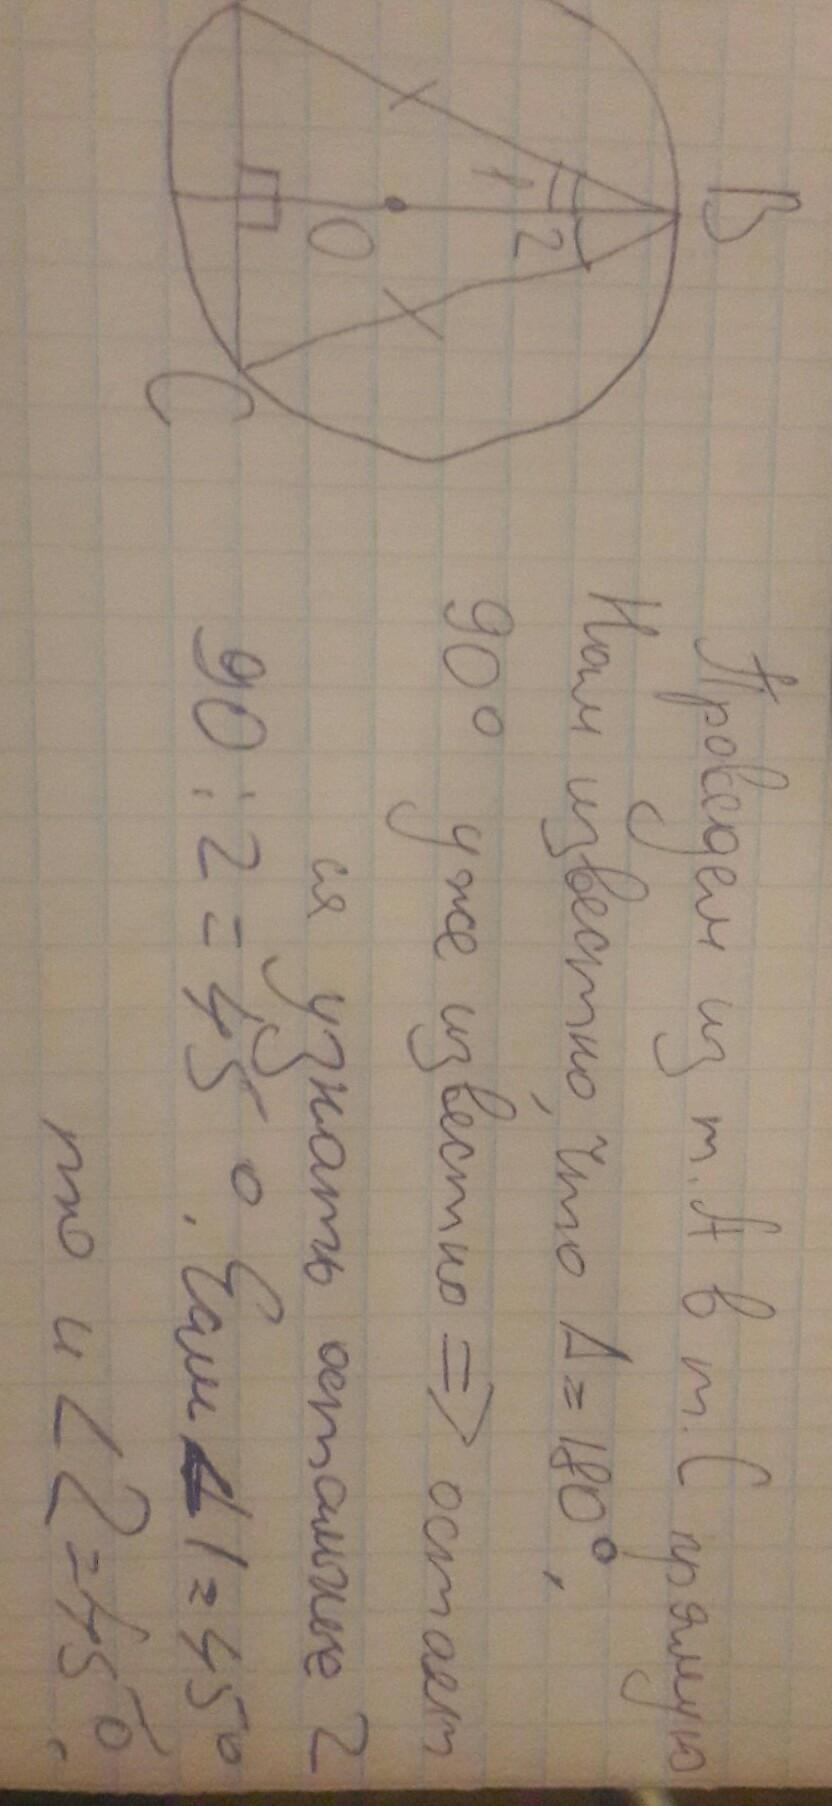 B
1
2
O
C
Проведем из т. А в т. С прямую
Нам известно, что Δ = 180°,
90° уже известно => остает
ся узнать остальные 2
90 : 2 = 45°. Если ∠1 = 45°
то и ∠2 = 45°.